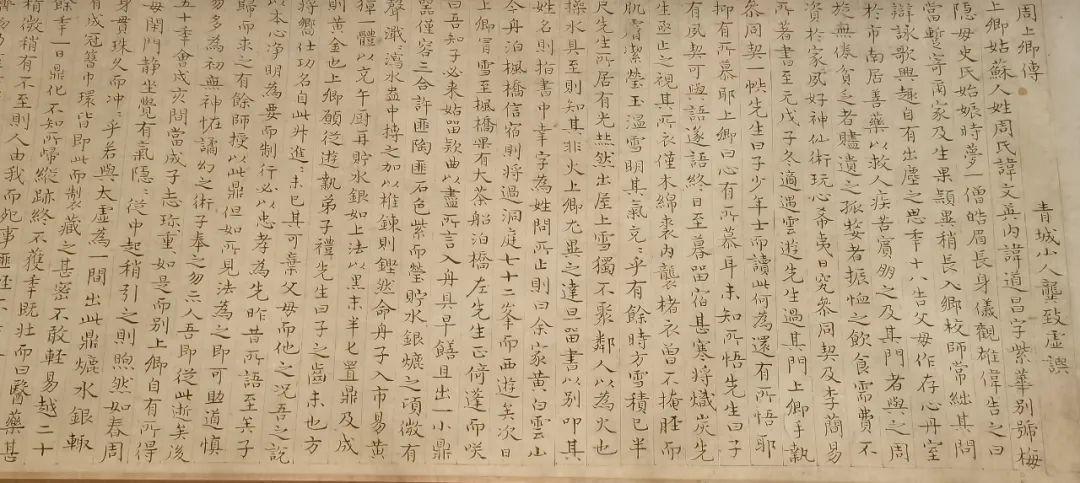 周上卿傳
青城小人龔致虛譔
上卿姑蘇人姓周氏諱文真內諱道昌字紫華別號梅
隱母史氏始娠時夢一僧皓眉長身儀觀雄偉告之曰
當蹔寄南家及生果顯異稍長入鄉校師常絀其問
辯詠歌興趣自有出塵之思年十八告父母作存心丹室
於市南居善藥以救人疾苦賓朋之及其門者與之周
旋無倦貧乏者賻遺之孤嫠者振恤之飲食需費不
資於家夙好神仙術玩心斋夷日究參同契及李閱易
所著書至元戊子冬適遇雲遊先生過其門上卿手執
叅同契一帙先生曰子少年士而讀此何為還有所悟耶
抑有所慕耶上卿曰心有所慕耳未知所悟先生曰子
有夙契可與語遂語終日至暮畱宿甚寒將熾炭先
生亟止之視其所衣僅木綿裘內襲楮衣曾不掩胫而
肌膚潔瑩玉溫雪明其氣充乎有餘時方雪積已半
尺先生所居有光烝然出屋上雪獨不聚鄰人以為火也
操水具至則知其非火上卿尤異之達旦畱書以別叩其
姓名則指書中幸字為姓問所止則曰余家黃白雲山
今舟泊楓橋信宿則將過洞庭七十二峯而西遊矣次日
上卿冐雪至楓橋果有大茶船泊橋左先生正倚蓬而咲
曰吾知子必来姑畱款曲以盡所言入舟具早饍且出一小鼎
噐僅容三合許匪陶匪石色紫而瑩貯水銀爊之頃微有
聲瀐瀉水盎中摶之加以椎鍊則鏗然命丹子入市易黃
獐一體以充午厨再貯水銀如上法以黑末半匕置鼎及成
則黃金也上卿願從遊執弟子禮先生曰子之齒未也方
將嚮仕功名自此升進未已其可棄父母而他之況吾之說
以本心淨明為要而制行必以忠孝為先昨昔所語至矣子
歸而求之有餘師授以此鼎但如所見法為之即可助道慎
易多為初無神恠譎幻之術子奉之勿示人吾即從此逝矣後
五十年會戌亥問當成子志珎重如是而別上卿自有所得
每閉門静坐覺有氣隱從中起稍引之則煦然如春周
身貫珠久而沖乎若與太虛為一間出此鼎爊水銀輙
有成冠簪巾環皆即此而製藏之甚密不敢輕易越二十
餘年一日鼎化不知所㱕縱跡終不獲季既壮而曰醫藥甚
精微稍有不至則人由我而死事匪